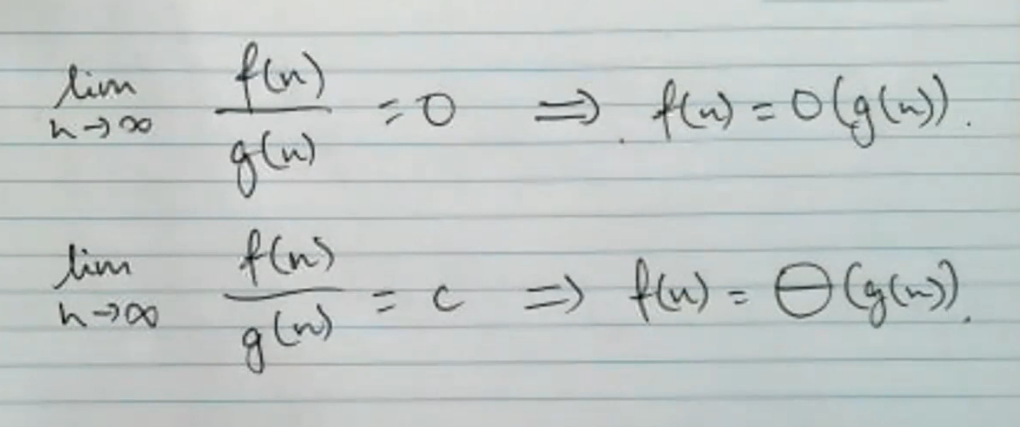 lim n→∞ f(n)/g(n) = 0 ⇒ f(n) = O(g(n)).
lim n→∞ f(n)/g(n) = c ⇒ f(n) = Θ(g(n)).